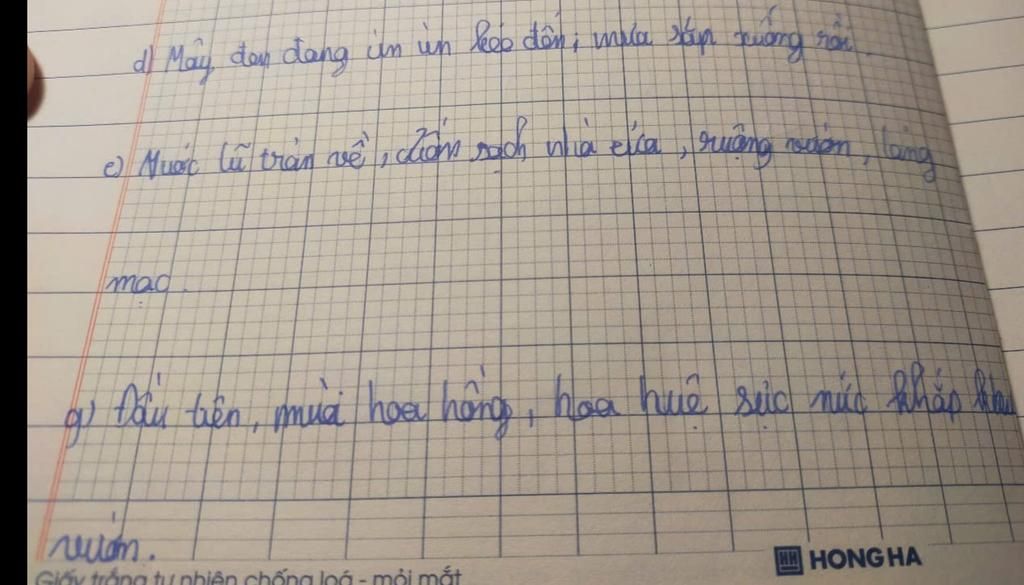 d) Mây đen đang ùn ùn kéo đến, mưa sắp xuống rồi
e) Nước lũ tràn về, cuốn sạch nhà cửa, ruộng vườn, làng
mạc.
g) Đầu tiên, mùi hoa hồng, hoa huệ sực nức khắp khu
vườn.
HONG HA
Giấy trắng tự nhiên chống loá - mỏi mắt